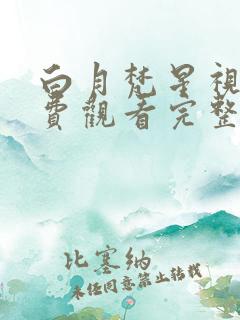 白月梵星視
費觀看完整
比塞纳
未经同意禁止转载